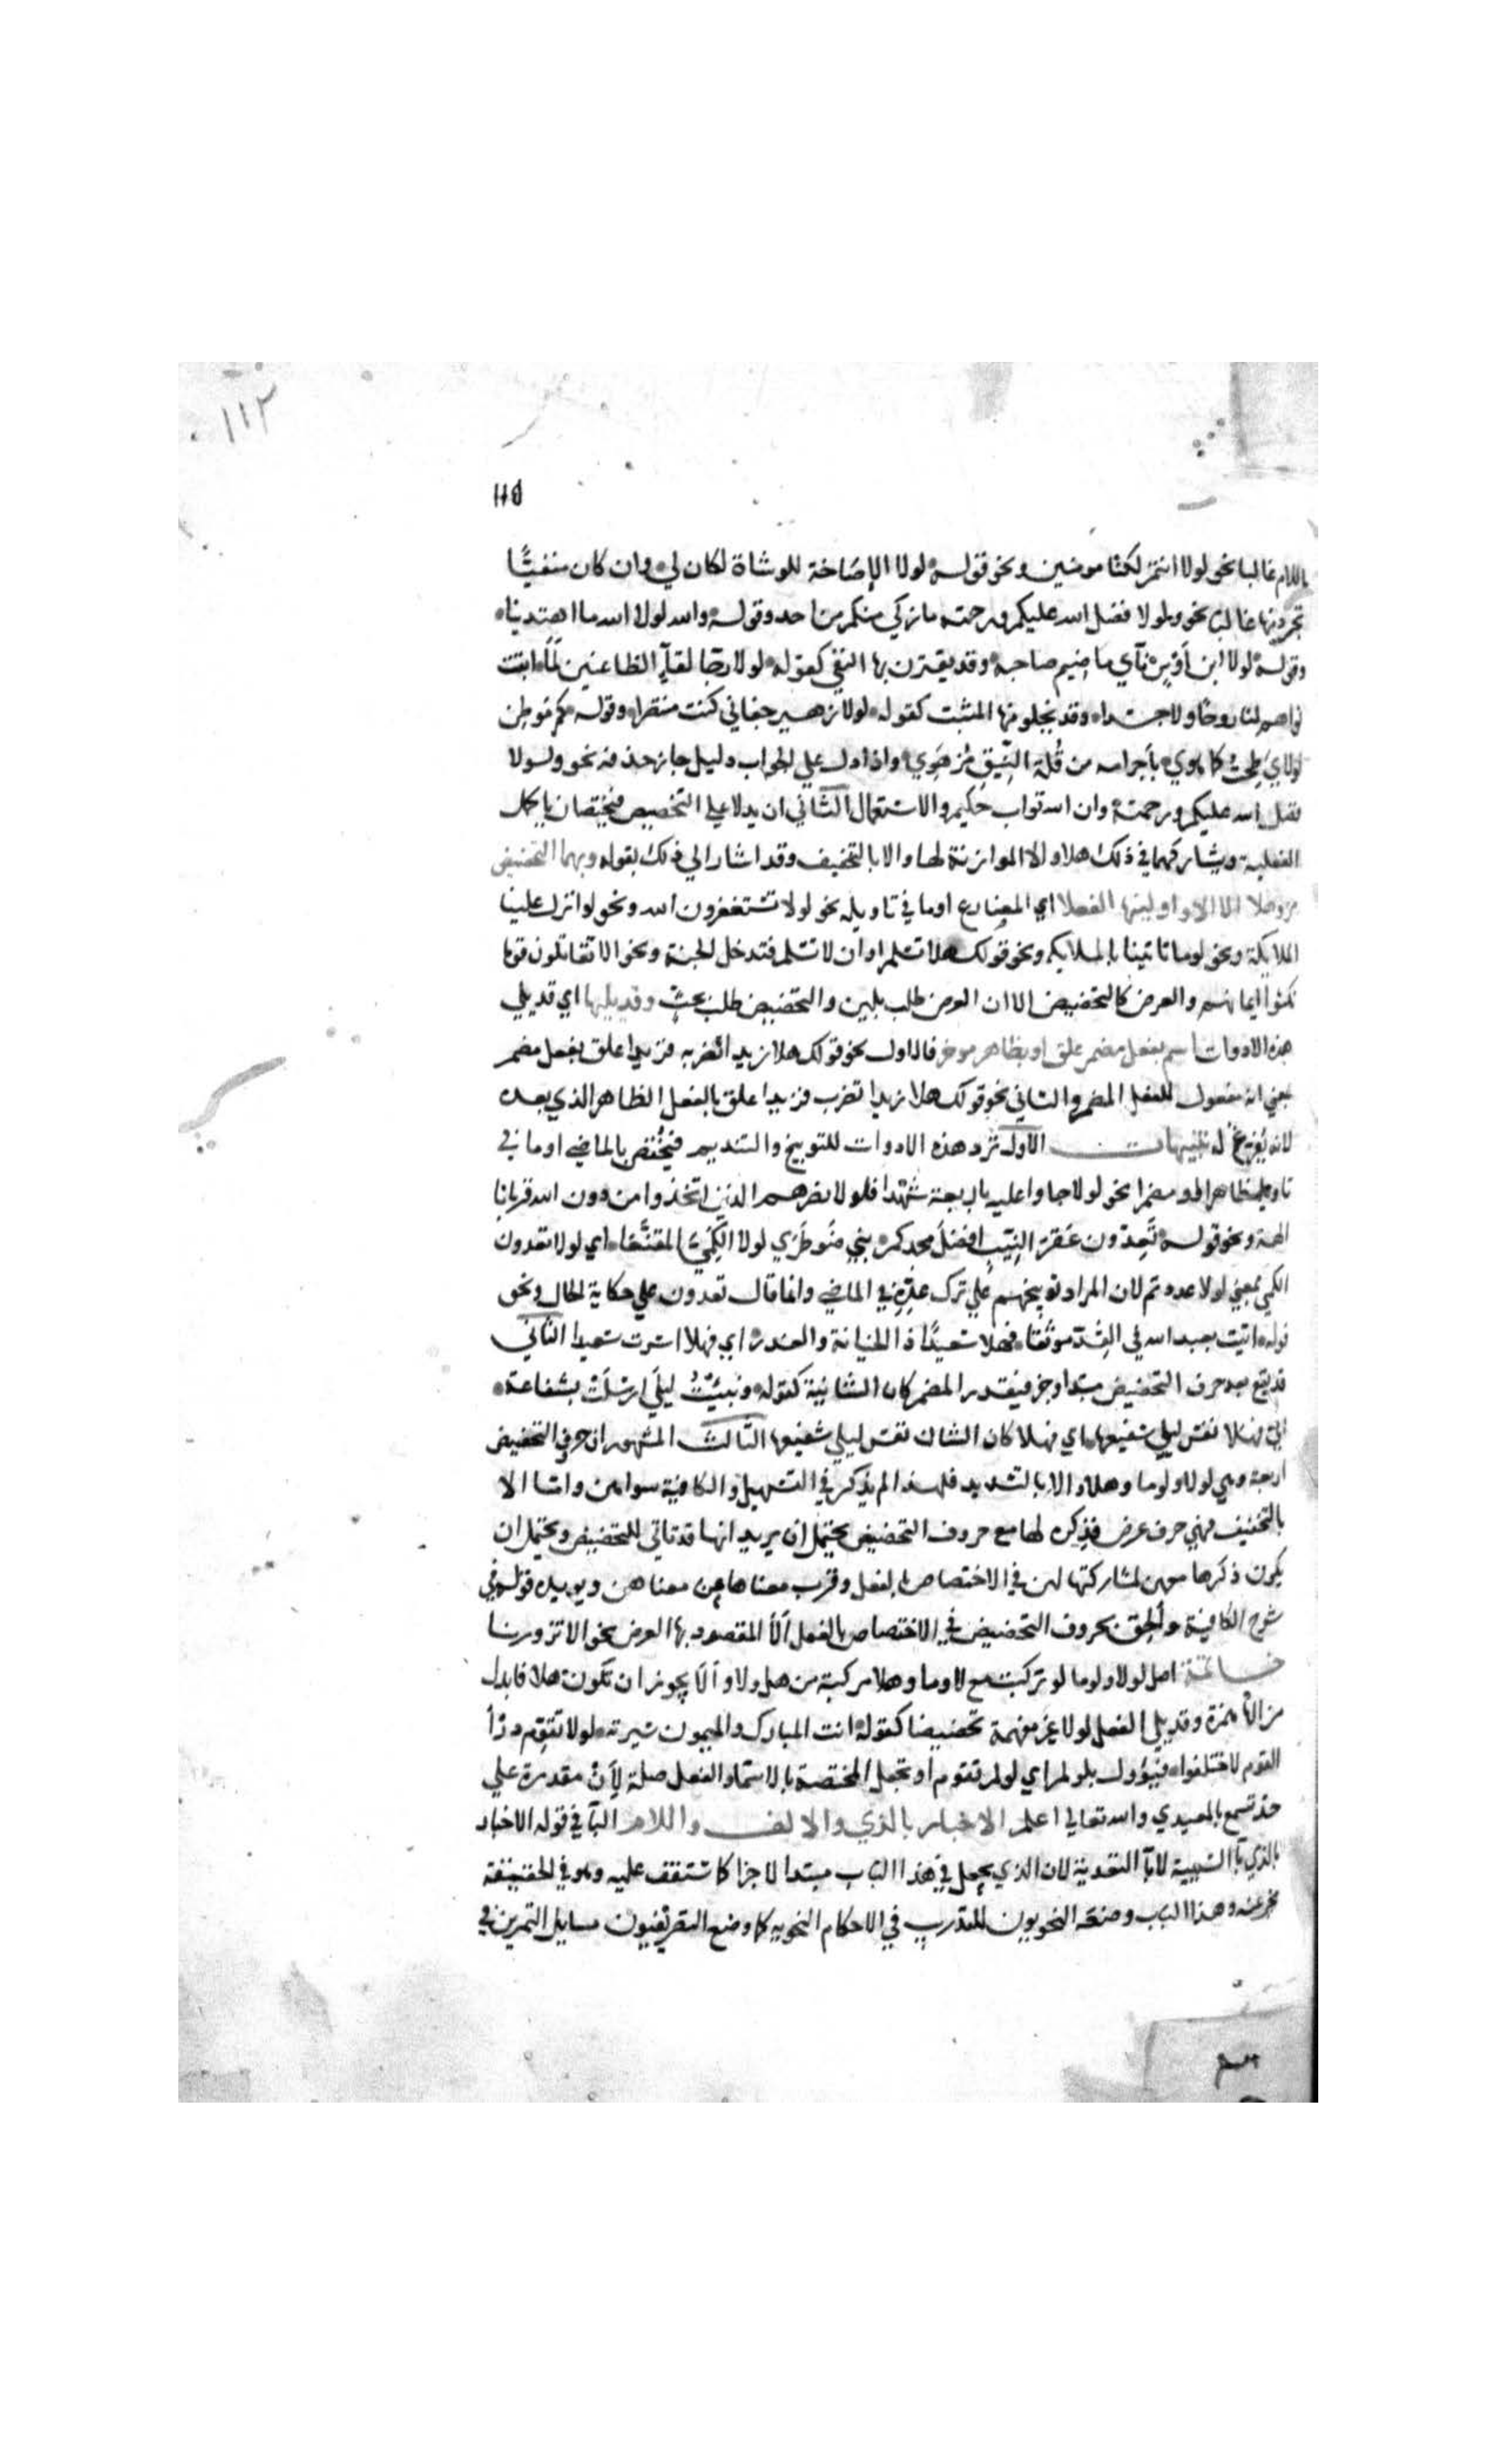 ١١٢
١١٥
باللام غالبا نحو لولا انتم لكنا مومنين ونحو قوله لولا الإصاخة للوشاة لكان لي وان كان منفيًّا
تجرد منها غالبا نحو ولولا فضل الله عليكم ورحمته ما زكي منكم من احد وقوله والله لولا الله ما اهتدينا
وقوله لولا ابن أوس نآي ما ضيم صاحبه وقد يقترن بها النفي كقوله لولا رجا لقآ الظاعنين لمآ ابقت
نواهم لنا روحا ولا جسدا وقد يخلو منها المثبت كقوله لولا زهير جفاني كنت منتصرا وقوله كم موطن
لولاي طحت كما هوي بأجرامه من قُلة النِّيقِ مُنهَوِي واذا دل علي الجواب دليل جاز حذفه نحو ولولا
فضل الله عليكم ورحمته وان الله تواب حكيم والاستعمال الثاني ان يدلا علي التحضيض فيختصان بالجمل
الفعلية ويشاركهما في ذلك هلا والا الموازنة لها والا بالتخفيف وقد اشار الي ذلك بقوله وبهما التحضيض
مز وهلا الا الا واولينها الفعلا اي المضارع اوما في تاويله نحو لولا تستغفرون الله ونحو لولا انزل علينا
الملايكة ونحو لوما تاتينا بالملايكه ونحو قولك هلا تسلم او ان لا تسلم فتدخل الجنة ونحو الا تقاتلون قوما
نكثوا ايمانهم والعرض كالتحضيض الا ان العرض طلب بلين والتحضيض طلب بحثٍ وقد يليها اي قد يلي
هذه الادوات اسم بفعل مضمر علق او بظاهر موخر فالاول نحو قولك هلا زيدا تضربه فزيدا علق بفعل مضمر
بمعني انه مفعول للفعل المضمر والثاني نحو قولك هلا زيدا تضرب فزيدا علق بالفعل الظاهر الذي بعده
لانه يفرغ له تنبيهات الاول ترد هذه الادوات للتوبيخ والتنديم فيختص بالماضي اوما في
تاويله ظاهرا او مضمرا نحو لولا جاوا عليه باربعة شهدا فلولا نصرهم الذين اتخذوا من دون الله قربانا
الهة ونحو قوله تَعدّون عَقرَ النِيبِ افضل مجدكم بني ضوطري لولا الكمي المقنعا اي لولا تعدون
الكمي بمعني لولا عددتم لان المراد توبيخهم علي ترك عده في الماضي وانما قال تعدون علي حكاية الحال ونحو
قوله اتيت بعبد الله في القِدّ موثقا فهلا سعيدًا ذا الخيانة والغدر اي فهلا اسرت سعيدا الثاني
قد يقع بعد حرف التحضيض مبتدا وخبر فيقدر المضمر كان الشانية كقوله ونبئت ليلي ارسلت بشفاعة
الي فهلا نفس ليلي شفيعها اي فهلا كان الشان نفس ليلي شفيعها الثالث المشهور ان حروف التحضيض
اربعة وهي لولا ولوما وهلا والا بالتشديد فلهذا لم يذكر في التسهيل والكافية سواهن واما الا
بالتخفيف فهي حرف عرض فذكره لها مع حروف التحضيض يحتمل ان يريد انها قد تاتي للتحضيض ويحتمل ان
يكون ذكرها معهن لمشاركتها لهن في الاختصاص بالفعل وقرب معناها من معناهن ويويده قوله في
شرح الكافية والحق بحروف التحضيض في الاختصاص بالفعل ألا المقصود بها العرض نحو الا تزورنا
خاتمة اصل لولا ولوما لو تركبت مع لا وما وهلا مركبة من هل ولا وألا يجوز ان تكون هلا فابدل
من الها همزة وقد يلي الفعل لولا غير مفهمة تحضيضا كقوله انت المبارك والميمون سيرته لولا تقوم درأ
القوم لاختلفوا فيؤول بلولم اي لو لم تقوم او تجعل المختصة بالاسما والفعل صلة لأن مقدرة علي
حد تسمع بالمعيدي والله تعالي اعلم الاخبار بالذي والالف واللام البآ في قوله الاخبار
بالذي بآ السببية لا بآ التعدية لان الذي يجعل في هذا الباب مبتدا لا خبرا كما ستقف عليه وهو في الحقيقة
مخبر عنه وهذا الباب وضعه النحويون للتدريب في الاحكام النحويه كما وضع التصريفيون مسايل التمرين في